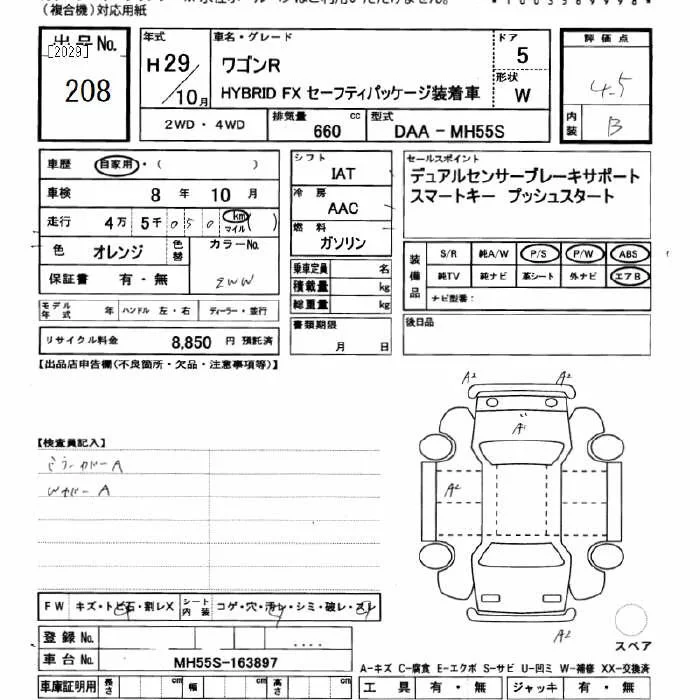 (複合機)対応用紙
出品No.
[2029]
208
年式
H29/10月
車名・グレード
ワゴンR
HYBRID FX セーフティパッケージ装着車
ドア
5
形状
W
評価点
4.5
内装
B
2WD・4WD
排気量
660
cc
型式
DAA-MH55S
車歴
自家用・( )
車検
8 年 10 月
走行
4万 5千 0 5 0 km マイル ( )
色
オレンジ
色替
カラーNo.
ZWW
保証書
有・無
モデル年式
年
ハンドル 左・右
ディーラー・並行
リサイクル料金
8,850 円 預託済
シフト
IAT
冷房
AAC
燃料
ガソリン
乗車定員 名
積載量 kg
総重量 kg
書類期限
月 日
セールスポイント
デュアルセンサーブレーキサポート
スマートキー プッシュスタート
装備品
S/R 純A/W P/S P/W ABS
純TV 純ナビ 革シート 外ナビ エアB
ナビ型番:
後日品
【出品店申告欄(不良箇所・欠品・注意事項等)】
【検査員記入】
ミラーカバーA
WカバーA
A2 A2
A1
A2
A2
スペア
FW キズ・トビ石・割レX
シート内装 コゲ・穴・汚レ・シミ・破レ・スレ
登録No.
車台No.
MH55S-163897
A-キズ C-腐食 E-エクボ S-サビ U-凹ミ W-補修 XX-交換済
車庫証明用 長さ cm 幅 cm 高さ cm
工具 有・無 ジャッキ 有・無